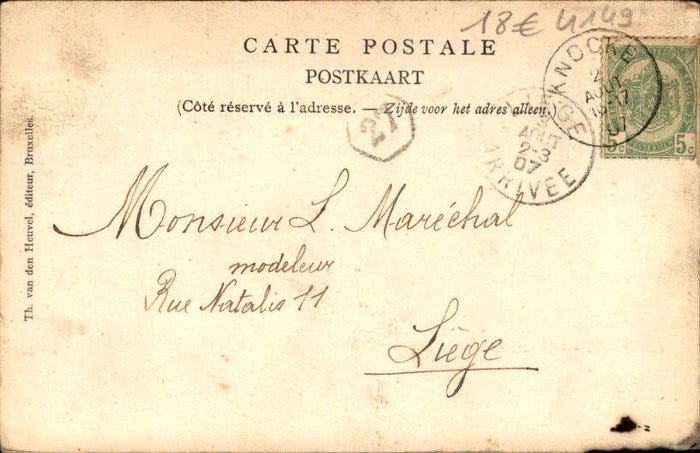 18€ 4149
CARTE POSTALE
POSTKAART
(Côté réservé à l'adresse. — Zijde voor het adres alleen.)
KNOCKE
AOUT
07
5c 5c
LIEGE
AOUT
2-3
07
ARRIVÉE
22
Monsieur L. Maréchal
modeleur
Rue Natalis 11
Liège
Th. van den Heuvel, éditeur, Bruxelles.